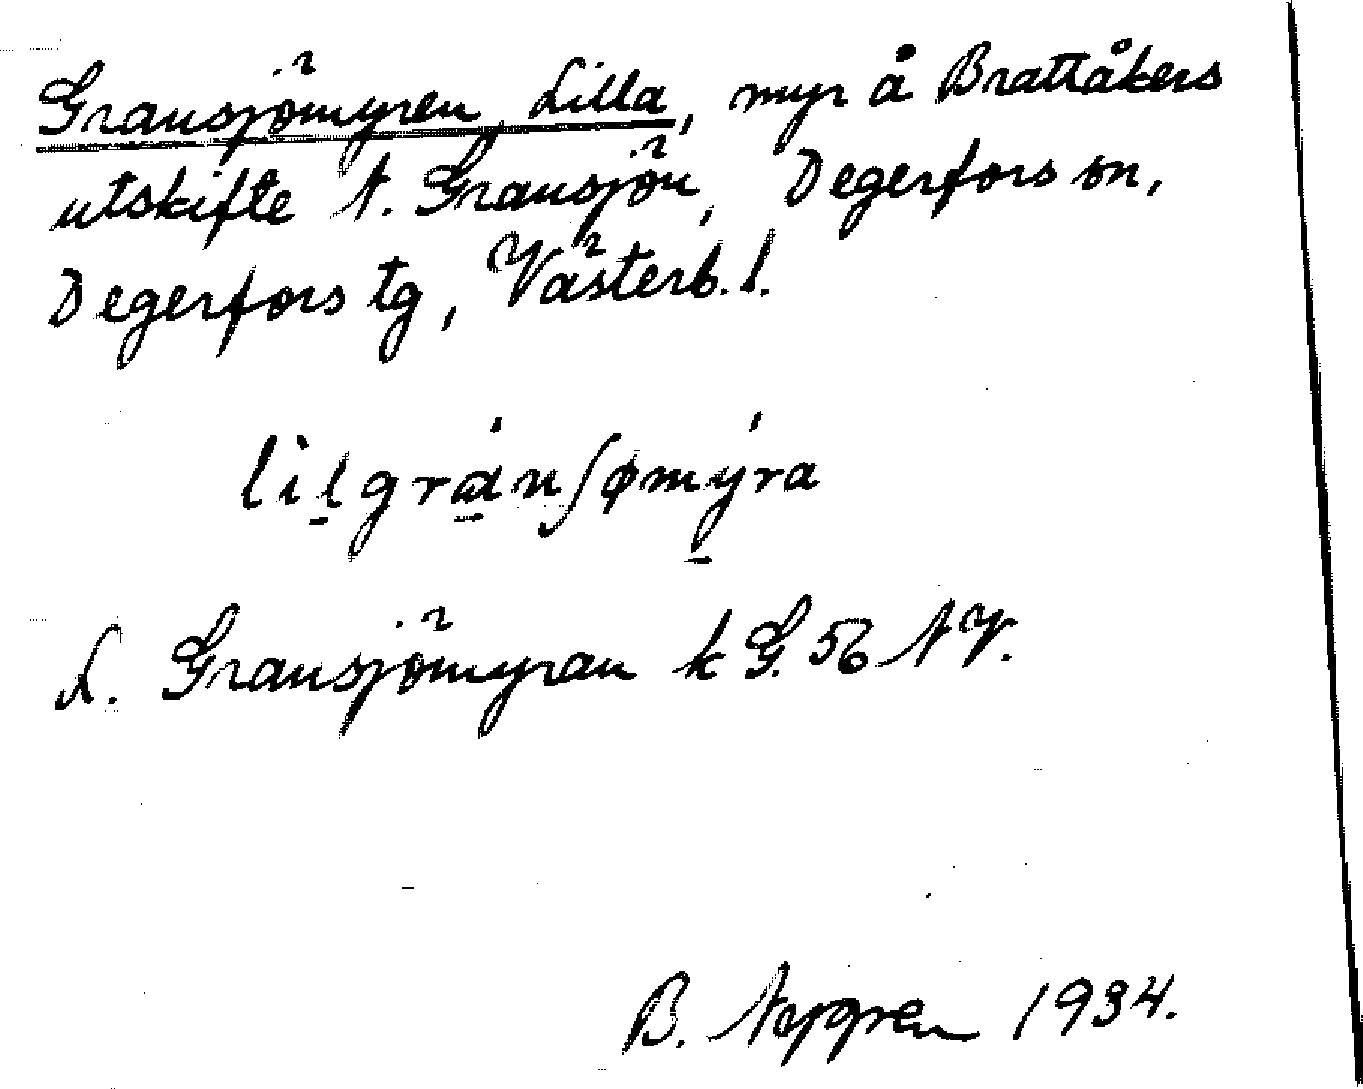 Gransjömyren, Lilla, myr å Brattåkers
utskifte N. Gransjön, Degerfors sn,
Degerfors tg, Västerb. l.
lilgránʃømýra
L. Gransjömyran k G. 56 NV.
B. 1934.